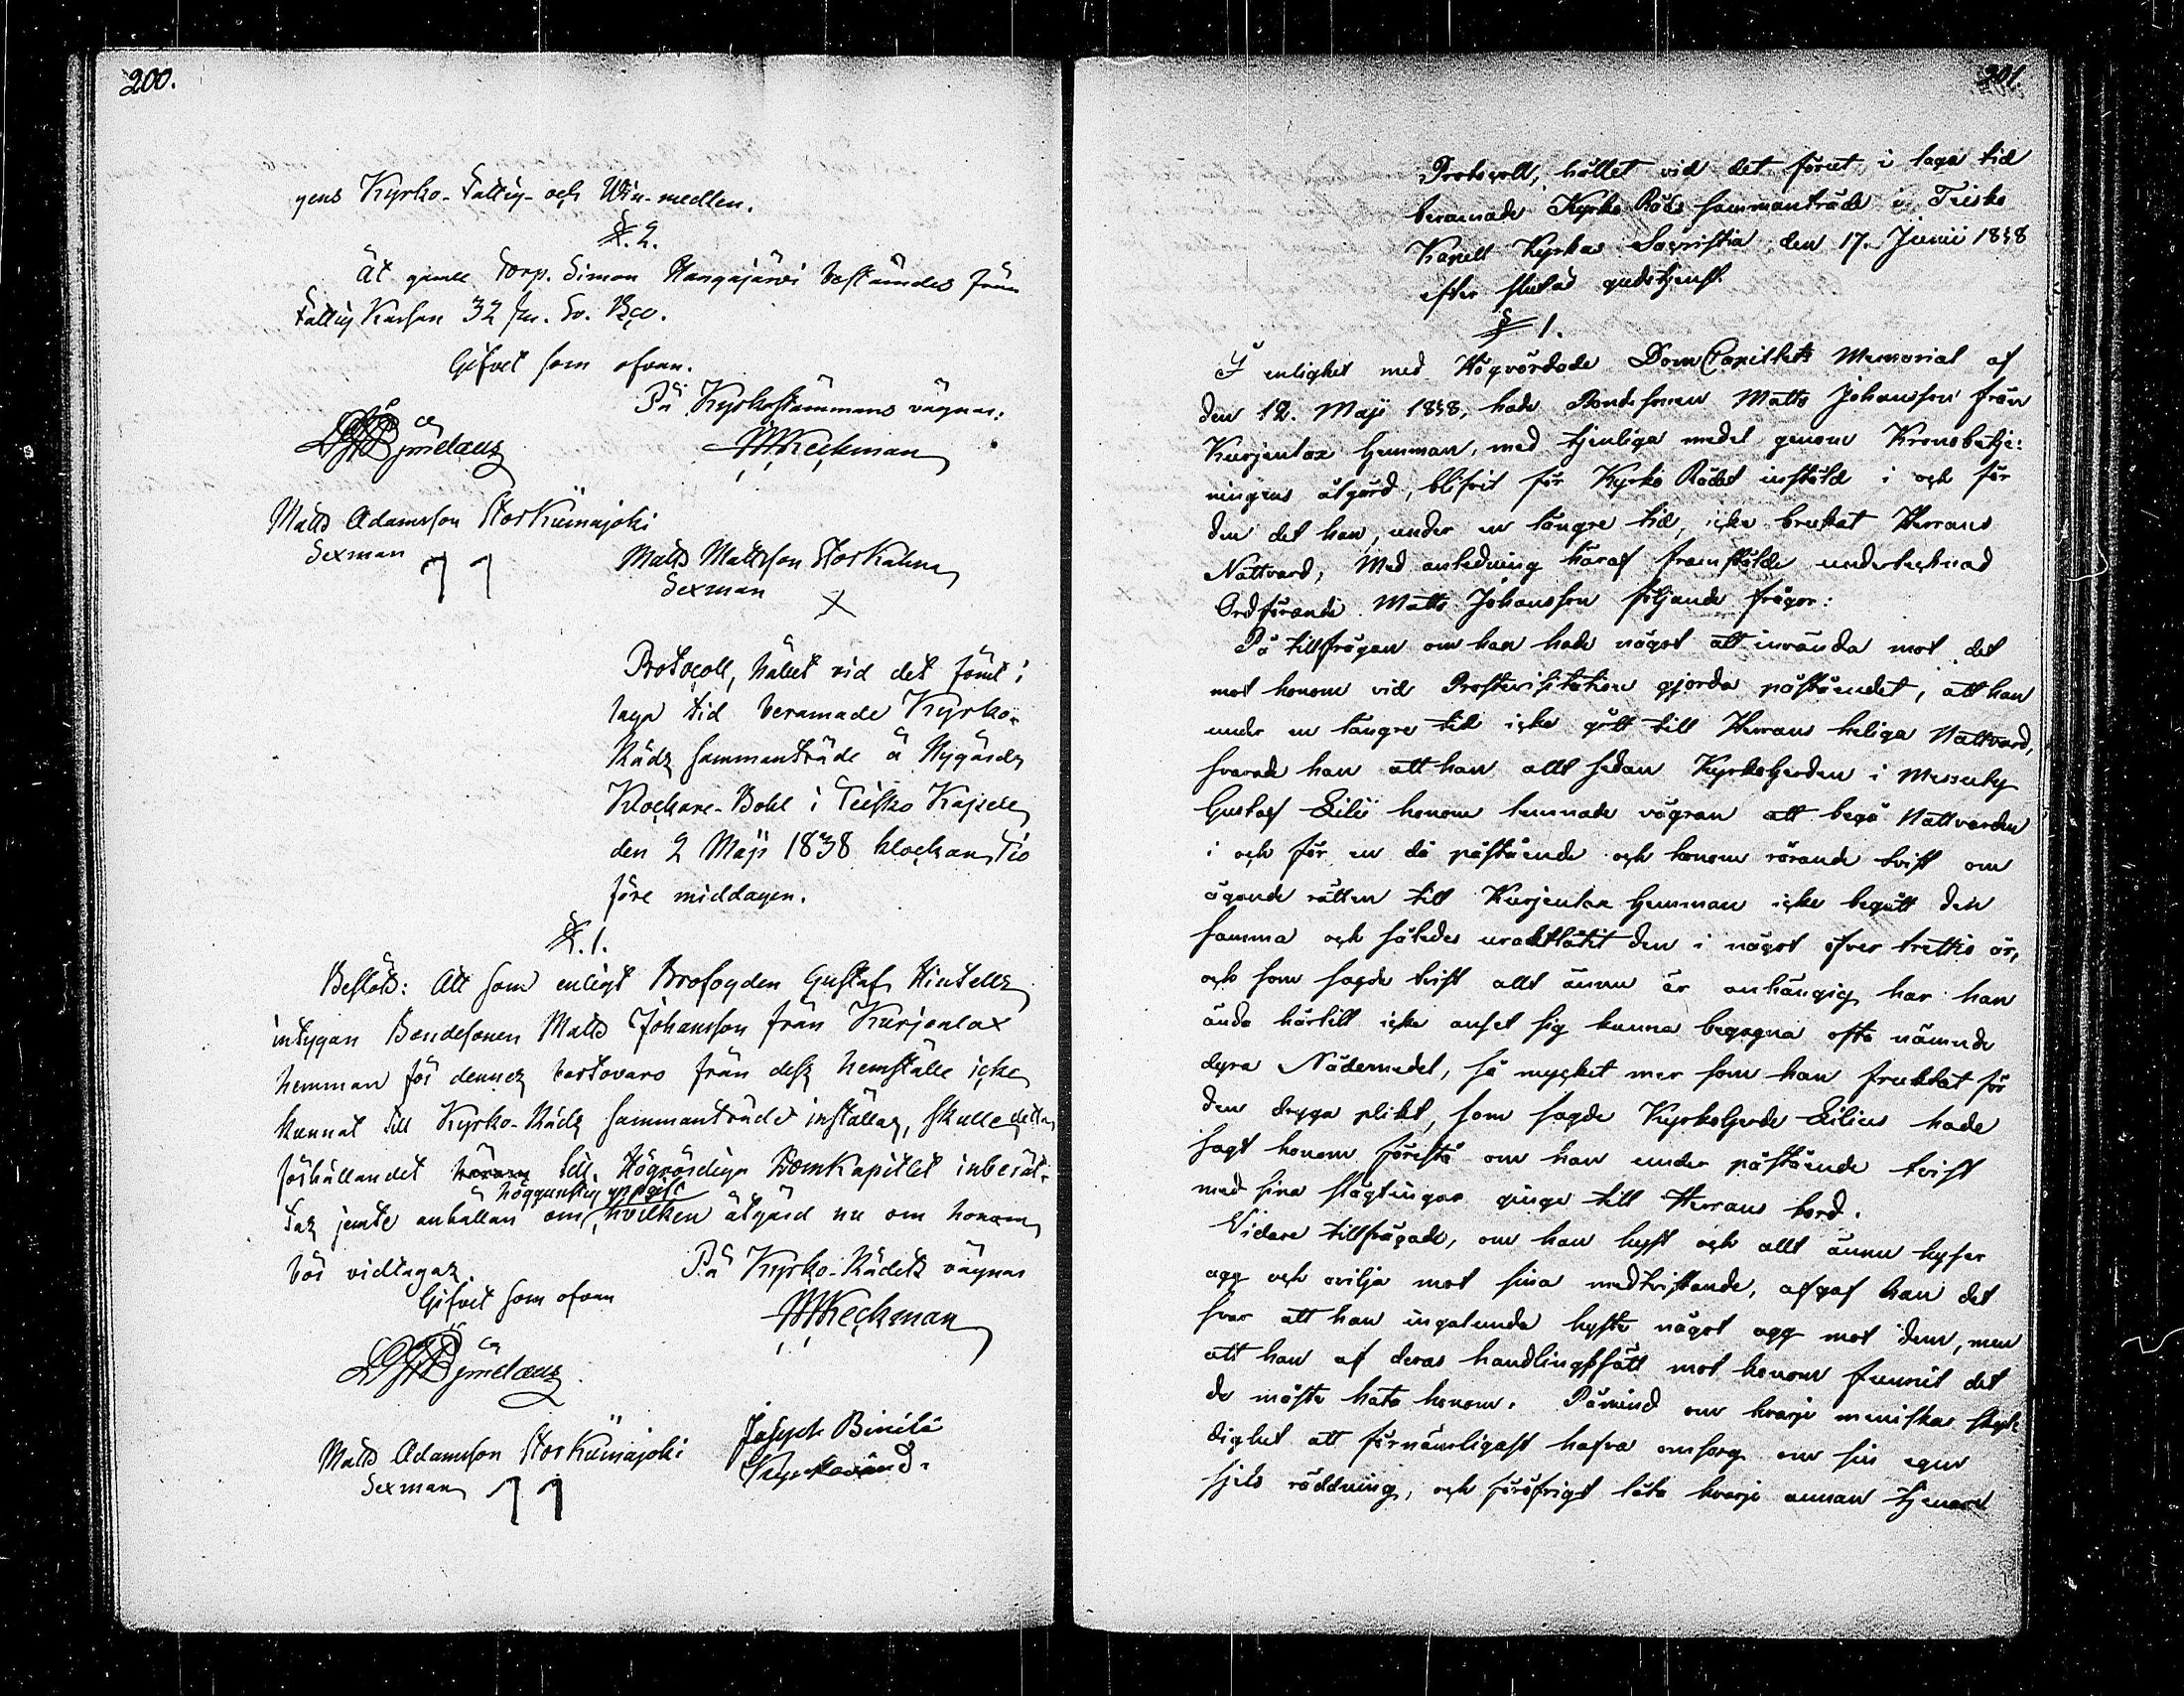 200.
gens Kyrko-Fattig- och Win-medlen.
§. 2.
Åt gamle Torp. Simon Hangasjärvi bestämdes från
Fattig Kassan 32 sk. Sv. Bco.
Gifvet som ofvan.
På Kyrkostämmans vägnar:
Matts Adamsson Storkuivajoki
Sexman
Matts Mattsson Storkaluna
Sexman
Protocoll, hållet vid det förut i
laga tid beramade Kyrko-
Råds sammanträde å Nygårds
Klockare-Bohl i Teisko Kapell
den 2 Maji 1838 klockan Tio
före middagen.
§. 1.
Beslöts: Att som enligt Brofogden Gustaf Hintells
intygan Bondesonen Matts Johansson från Kurjenlax
hemman för dennes bortovaro från dess hemställe icke
kunnat till Kyrko-Råds sammanträde inställas, skulle detta
förhållandet till Högvördiga Domkapitlet inberät-
höggunstig uppgift
tas jemte anhållan om hvilken åtgärd nu om honom
bör vidtagas.
Gifvet som ofvan
På Kyrko-Rådets vägnar
Matts Adamsson Storkuivajoki
Sexman
Joseph Binilä
Kyrkovärd.
201.
Protocoll, hållet vid det förut i laga tid
beramade Kyrko Råds sammanträde i Teisko
Kapell Kyrkas Sacristia den 17. Junii 1838
efter slutad gudstjenst.
§ 1.
I enlighet med Högvördade DomCapitlets Memorial af
den 12. Maji 1838, hade Bondesonen Matts Johansson från
Kurjenlax hemman, med tjenliga medel genom Kronobetje-
ningens åtgärd, blifvit för Kyrko Rådet instäld i och för
den det han, under en längre tid, icke brukat Herrans
Nattvard, Med anledning häraf framstälde undertecknad
Ordförande Matts Johansson följande frågor:
På tillfrågan om han hade något att invända mot det
mot honom vid Prostevisitation gjorda påståendet, att han
under en längre tid icke gått till Herrans heliga Nattvard,
svarade han att han allt sedan Kyrkoherden i Messuby
Gustaf Lilii honom lemnade vägran att begå Nattvarden
i och för en då påstående och honom rörande tvist om
ägande rätten till Kurjenlax hemman icke begått den
samma och således uraktlåtit den i något öfver trettio år,
och som sagde tvist allt ännu är anhängig har han
ända härtill icke anset sig kunna begagna ofta nämnde
dyra Nådemedel, så mycket mer som han fruktat för
den dryga plikt, som sagde Kyrkoherde Lilius hade
sagt honom förestå om han under påstående tvist
med sina slägtingar ginge till Herrans bord.
Vidare tillfrågade, om han hyst och allt ännu hyser
agg och ovilja mot sina medtvistande, afgaf han det
svar att han ingalunda hyste något agg mot dem, men
att han af deras handlingssätt mot honom funnit det
de måste hata honom. Påmind om hvarje menniskas skyl-
dighet att förnämligast hafva omsorg om sin egen
själs räddning, och föröfrigt låta hvarje annan